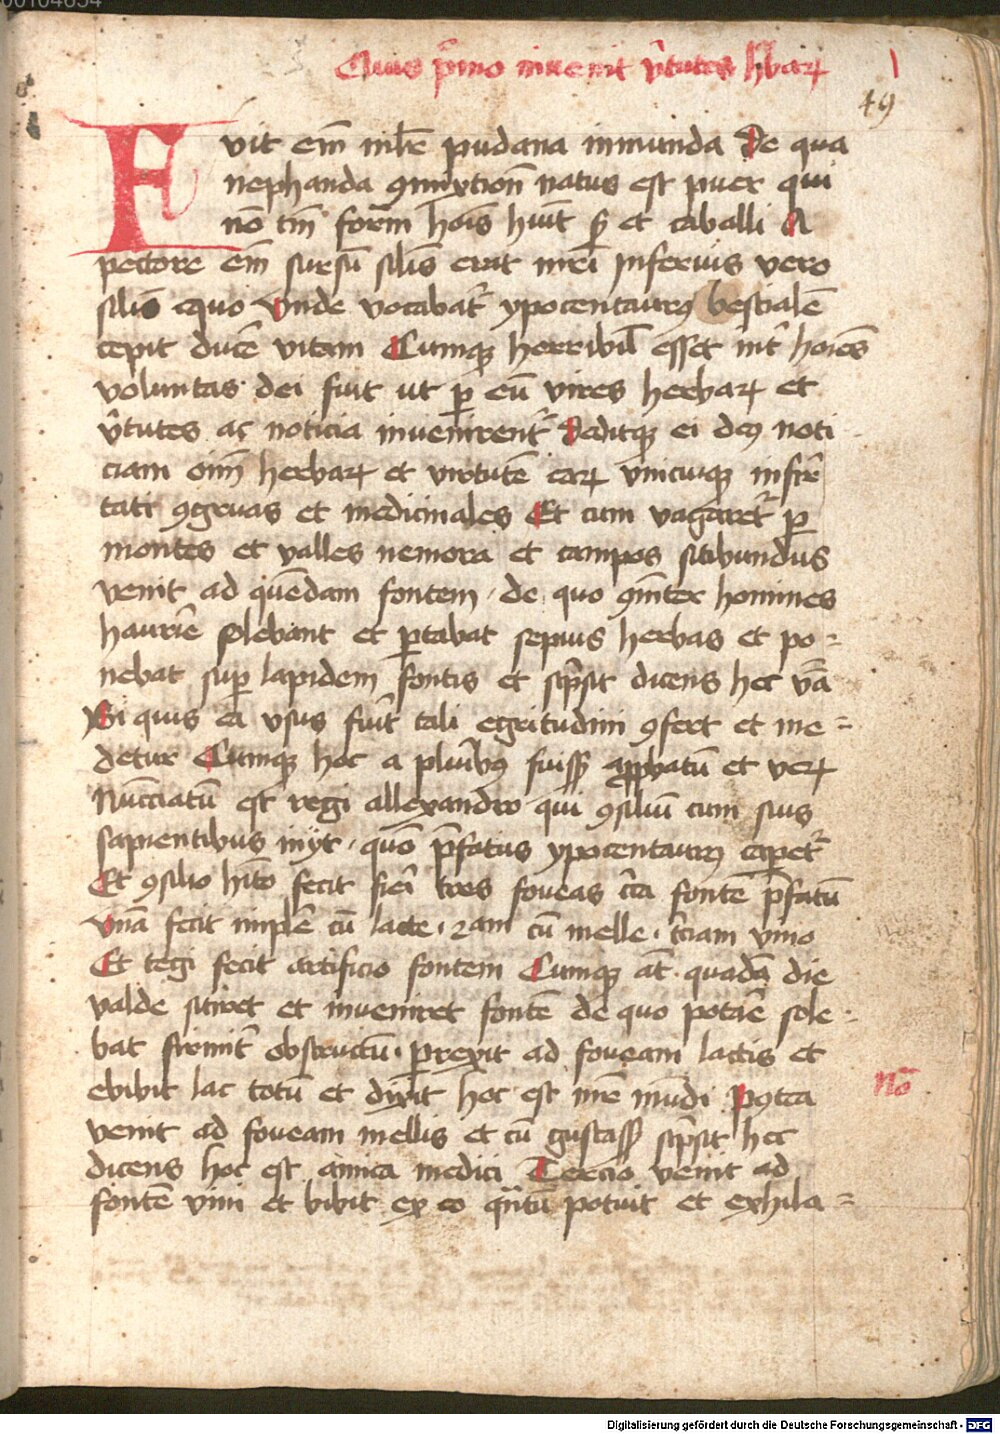 00104654
Quis p̄mo inuenit v̄tutes h̄bar℞
1
49
Fuit em̄ mulr̄ pudana inmunda De qua
nephanda ꝯmixtion̄ natus est puer qui
nō tm̄ form̄ hoīs hūit sꝫ et caballi A
pectore em̄ sursū sil̄is erat mr̄i Inferius vero
sil̄is equo Vnde vocabat᷑ ypocentaurꝰ bestialē
cepit ducē vitam Cumqꝫ horribil̄ esset int᷑ hoīes
voluntas dei fuit ut ꝑ eū vires herbar℞ et
v̄tutes ac noticia inuenirent᷑ Deditqꝫ ei deꝰ noti
ciam oīm̄ herbar℞ et virtutē ear℞ vnicuiqꝫ infir̄
tati ꝯgruas et medicinales Et cum vagaret᷑ ꝑ
montes et valles nemora et campos sitibundus
venit ad quēdam fontem de quo ꝯmīter homines
haurir̄e solebant et ꝑtabat sepius herbas et po=
nebat suꝑ lapidem fontis et scpsit dicens hec v̄a
Si quis ea vsus fuīt tali egritudini ꝯfert et me=
detur Cumqꝫ hoc a plurībꝰ fuissꝫ apꝓbatū et ver℞
Nūcciatū est regi allexandro qui ꝯsiliū cum suis
sapientibus inijt quō p̄fatus ypocentaurꝰ caperet᷑
Et ꝯsilio hīto fecit fieri tres foueas cīca fontē p̄fatū
Vnā fecit implē cū lacte 2am cū melle t̄ciam vino
Et tegi fecit artificio fontem Cumqꝫ at̄ quadā die
valde sitiret et inueniret fontē de quo potar̄e sole
bat firmit᷑ obstructū ꝑrexit ad foueam lactis et
ebibit lac totū et dixit hoc est mr̄e mūdi Pꝰtea
venit ad foueam mellis et cū gustassꝫ scpsit hec
dicens hoc est amica medici Tercio venit ad
fontē vini et bibit ex eo qn̄tū potuit et exhila=
nō
Digitalisierung gefördert durch die Deutsche Forschungsgemeinschaft - DFG